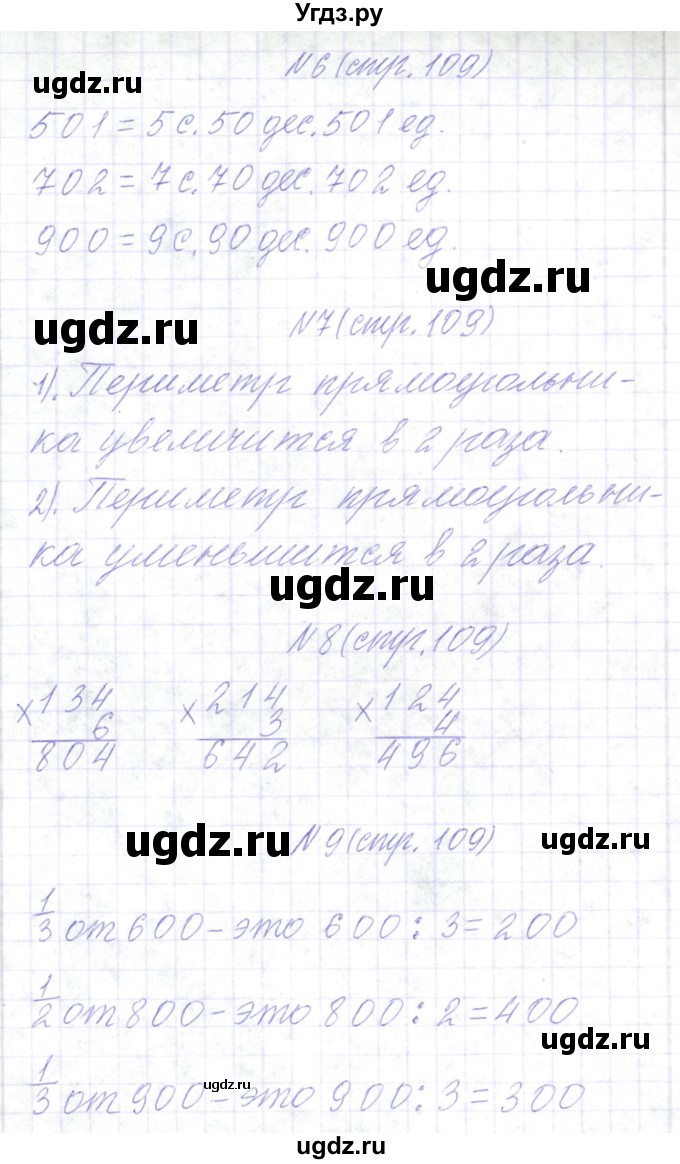 Угдз.ру
ugdz.ru
№6 (стр. 109)
501 = 5 с. 50 дес. 501 ед.
702 = 7 с. 70 дес. 702 ед.
900 = 9 с. 90 дес. 900 ед.
ugdz.ru
ugdz.ru
№7 (стр. 109)
1). Периметр прямоугольни-
ка увеличится в 2 раза.
2). Периметр прямоугольни-
ка уменьшится в 2 раза.
ugdz.ru
№8 (стр. 109)
× 134 × 214 × 124
6 3 4
804 642 496
ugdz.ru
№9 (стр. 109)
ugdz.ru
1/3 от 600 – это 600 : 3 = 200
1/2 от 800 – это 800 : 2 = 400
ugdz.ru
1/3 от 900 – это 900 : 3 = 300
ugdz.ru
ugdz.ru